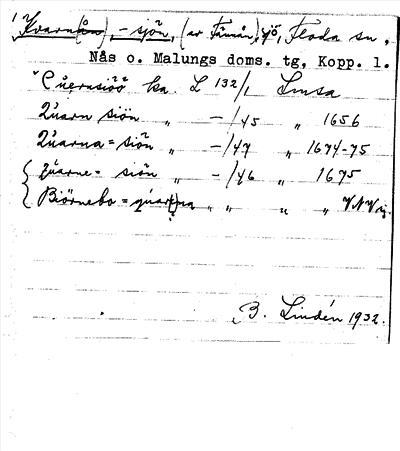 1 Kvarn(ån), -sjön, (av Tämån) sjö, Floda sn.,
Nås o. Malungs doms. tg, Kopp. l.
Quernsiöö ka. L 132/1 Lmsa
Quarn siön „ -/45 „ 1656
Quarna = siön „ -/47 „ 1674-75
quarne = siön „ -/46 „ 1675
Biörnebo = quarna „ „ „ „
B. Lindén 1932.